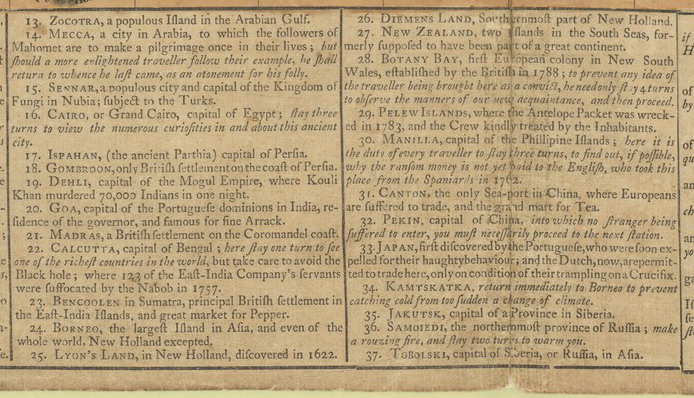 13. ZOCOTRA, a populous Iſland in the Arabian Gulf.
14. MECCA, a city in Arabia, to which the followers of
Mahomet are to make a pilgrimage once in their lives; but
ſhould a more enlightened traveller follow their example, he ſhall
return to whence he laſt came, as an atonement for his folly.
15. SENNAR, a populous city and capital of the Kingdom of
Fungi in Nubia; ſubject to the Turks.
16. CAIRO, or Grand Cairo, capital of Egypt; ſtay three
turns to view the numerous curioſities in and about this ancient
city.
17. ISPAHAN, (the ancient Parthia) capital of Perſia.
18. GOMBROON, only Britiſh ſettlement on the coaſt of Perſia.
19. DEHLI, capital of the Mogul Empire, where Kouli
Khan murdered 70,000 Indians in one night.
20. GOA, capital of the Portugueſe dominions in India, re-
ſidence of the governor, and famous for fine Arrack.
21. MADRAS, a Britiſh ſettlement on the Coromandel coaſt.
22. CALCUTTA, capital of Bengal; here ſtay one turn to ſee
one of the richeſt countries in the world, but take care to avoid the
Black hole; where 123 of the Eaſt-India Company's ſervants
were ſuffocated by the Nabob in 1757.
23. BENCOOLEN in Sumatra, principal Britiſh ſettlement in
the Eaſt-India Iſlands, and great market for Pepper.
24. BORNEO, the largeſt Iſland in Aſia, and even of the
whole world, New Holland excepted.
25. LYON'S LAND, in New Holland, diſcovered in 1622.
26. DIEMENS LAND, Southernmoſt part of New Holland.
27. NEW ZEALAND, two Iſlands in the South Seas, for-
merly ſuppoſed to have been part of a great continent.
28. BOTANY BAY, firſt European colony in New South
Wales, eſtabliſhed by the Britiſh in 1788; to prevent any idea of
the traveller being brought here as a convict, he need only ſtay 4 turns
to obſerve the manners of our new acquaintance, and then proceed.
29. PELEW ISLANDS, where the Antelope Packet was wreck-
ed in 1783, and the Crew kindly treated by the Inhabitants.
30. MANILLA, capital of the Phillipine Iſlands; here it is
the duty of every traveller to ſtay three turns, to find out, if poſſible,
why the ranſom money is not yet paid to the Engliſh, who took this
place from the Spaniards in 1762.
31. CANTON, the only Sea-port in China, where Europeans
are ſuffered to trade, and the grand mart for Tea.
32. PEKIN, capital of China, into which no ſtranger being
ſuffered to enter, you muſt neceſſarily proceed to the next ſtation.
33. JAPAN, firſt diſcovered by the Portugueſe, who were ſoon ex-
pelled for their haughty behaviour; and the Dutch, now, are permit-
ted to trade here, only on condition of their trampling on a Crucifix.
34. KAMTSKATKA, return immediately to Borneo to prevent
catching cold from too ſudden a change of climate.
35. JAKUTSK, capital of a Province in Siberia.
36. SAMOIEDI, the northernmoſt province of Ruſſia; make
a rouzing fire, and ſtay two turns to warm you.
37. TOBOLSKI, capital of Siberia, or Ruſſia, in Aſia.